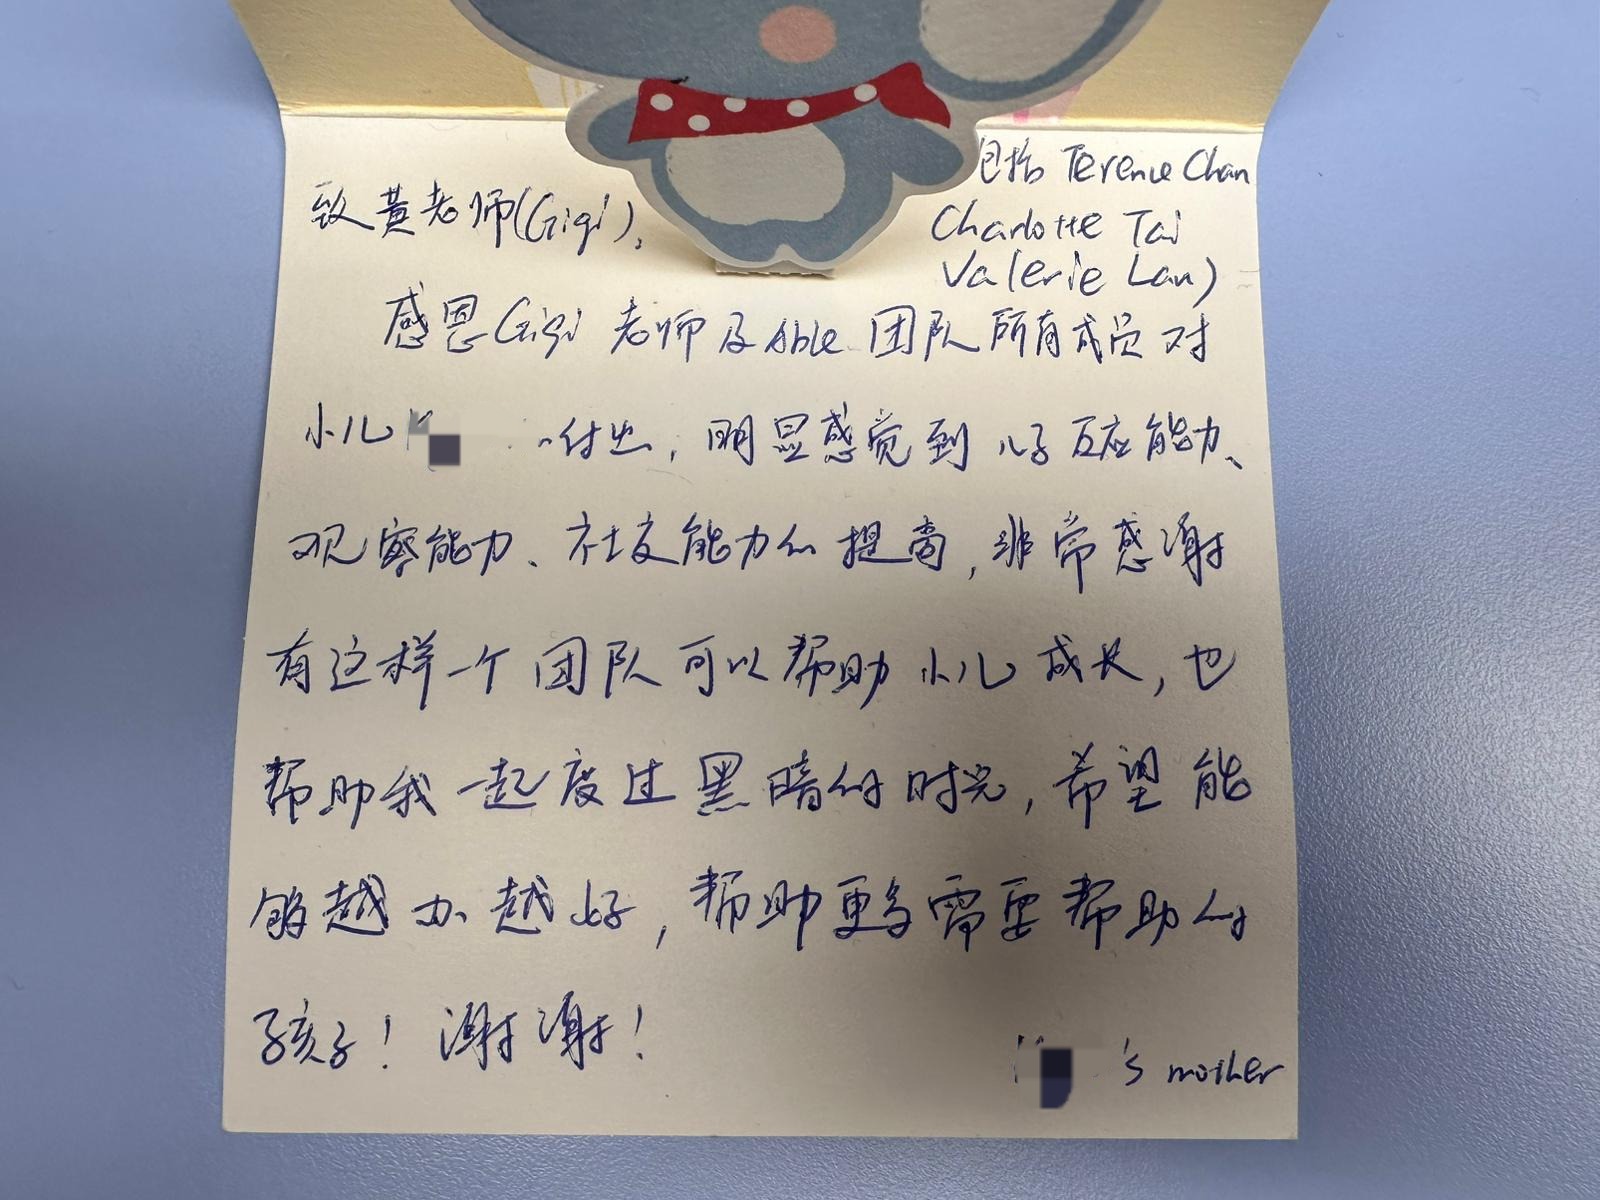 致黄老师(Gigi),
包括 Terence Chan
Charlotte Tai
Valerie Lau)
感恩Gigi 老师及Able 团队所有成员对
小儿 付出,明显感觉到儿子互应能力、
观察能力、社交能力的提高,非常感谢
有这样一个团队可以帮助小儿成长,也
帮助我一起度过黑暗的时光,希望能
够越办越好,帮助更多需要帮助的
孩子!谢谢!
's mother